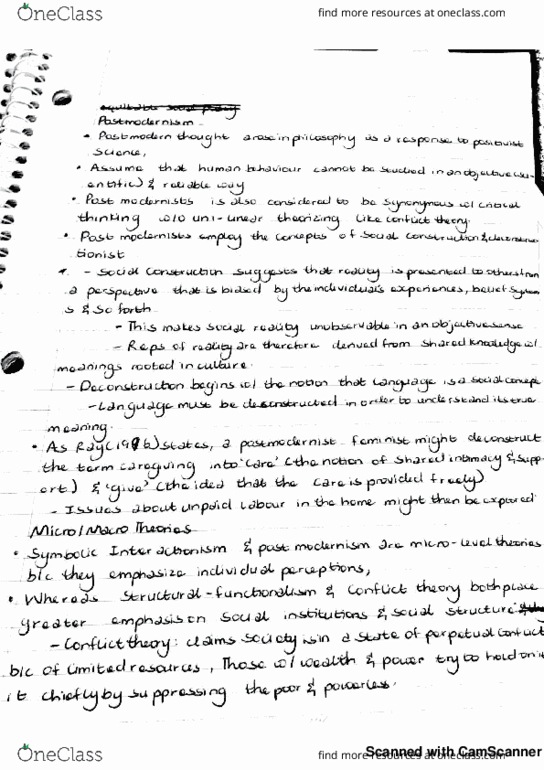 OneClass
find more resources at oneclass.com
equitable social policy
Postmodernism
• Postmodern thought arose in philosophy as a response to positivist
science,
• Assume that human behaviour cannot be studied in an objective (sci-
entific) & reliable way
• Post modernists is also considered to be synonymous w/ critical
thinking w/o uni-linear theorizing like conflict theory.
• Post modernists employ the concepts of social construction &
tionist
- Social construction suggests that reality is presented to others from
a perspective that is biased by the individual's experiences, belief system
s & so forth
- This makes social reality unobservable in an objective sense
- Reps of reality are therefore derived from shared knowledge w/
meanings rooted in culture.
- Deconstruction begins w/ the notion that language is a social concept
- Language must be deconstructed in order to understand its true
meaning.
• As Ray states, a postmodernist feminist might deconstruct
the term caregiving into 'care' (the notion of shared intimacy & supp-
ort) & 'give' (the idea that the care is provided freely)
- Issues about unpaid labour in the home might then be explored
Micro/Macro Theories
• Symbolic Interactionism & post modernism are micro-level theories
b/c they emphasize individual perceptions,
• Whereas Structural-functionalism & conflict theory both place
greater emphasis on social institutions & social structure
- Conflict theory: claims society is in a state of perpetual conflict
b/c of limited resources, Those w/ wealth & power try to hold on
it chiefly by suppressing the poor & powerless.
Scanned with CamScanner
OneClass
find more resources at oneclass.com